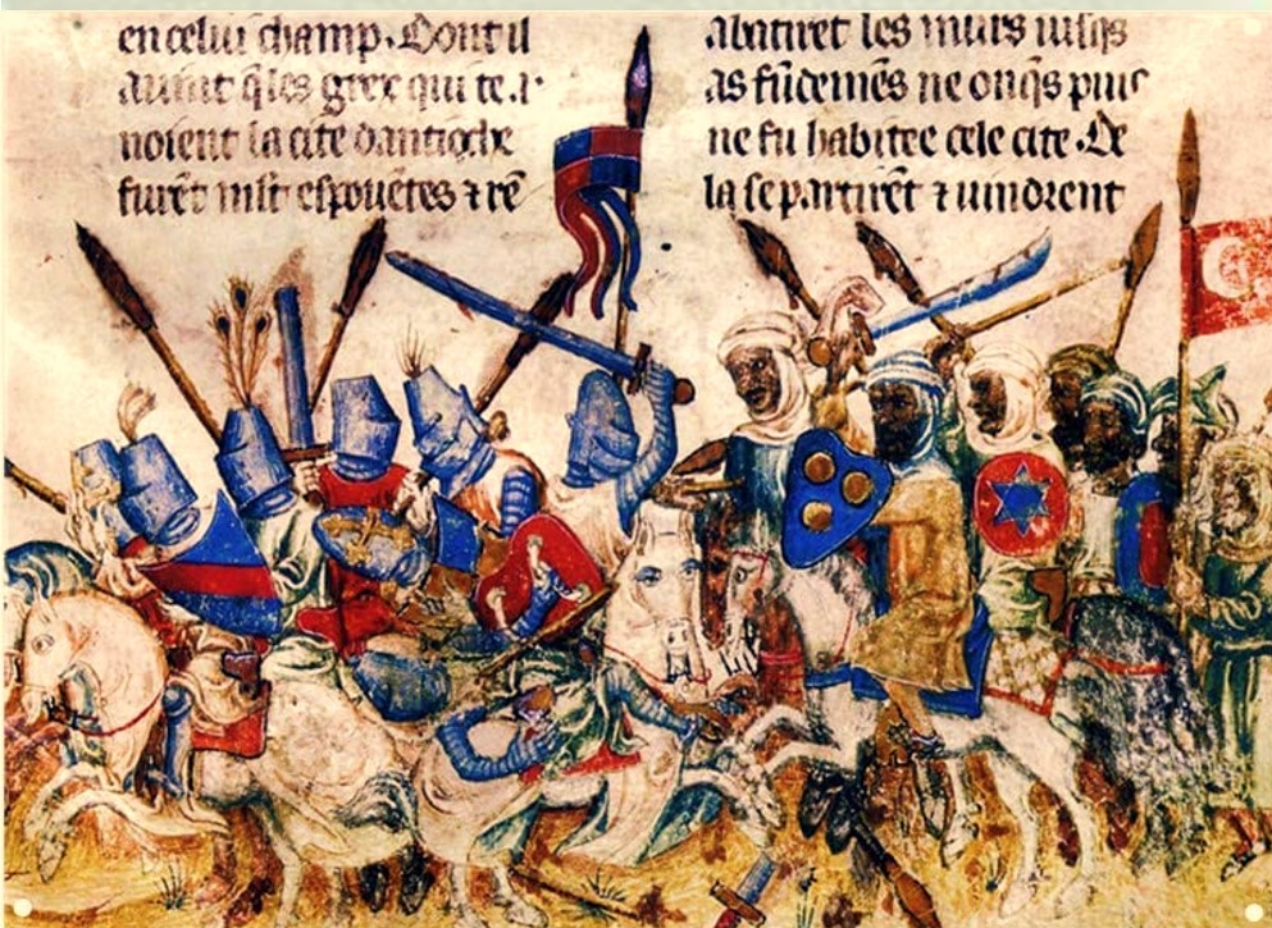 en celui champ. Dont il
auint q̃ les grex qui te
noient la cite dantioche
furẽt mlt espouẽtes ⁊ rẽ
abatiret les murs iusqs
as fũdemẽs ne onq̃s puis
ne fu habitee cele cite. De
la se partirẽt ⁊ uindrent